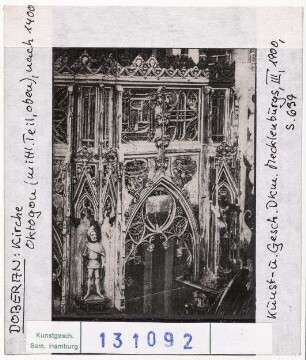 DOBERAN: Kirche
Oktogon (mittl. Teil, oben), nach 1400
Kunst- u. Gesch. Dkm. Mecklenburgs, III, 1900,
S. 639
Kunstgesch.
Sem. Hamburg
131092